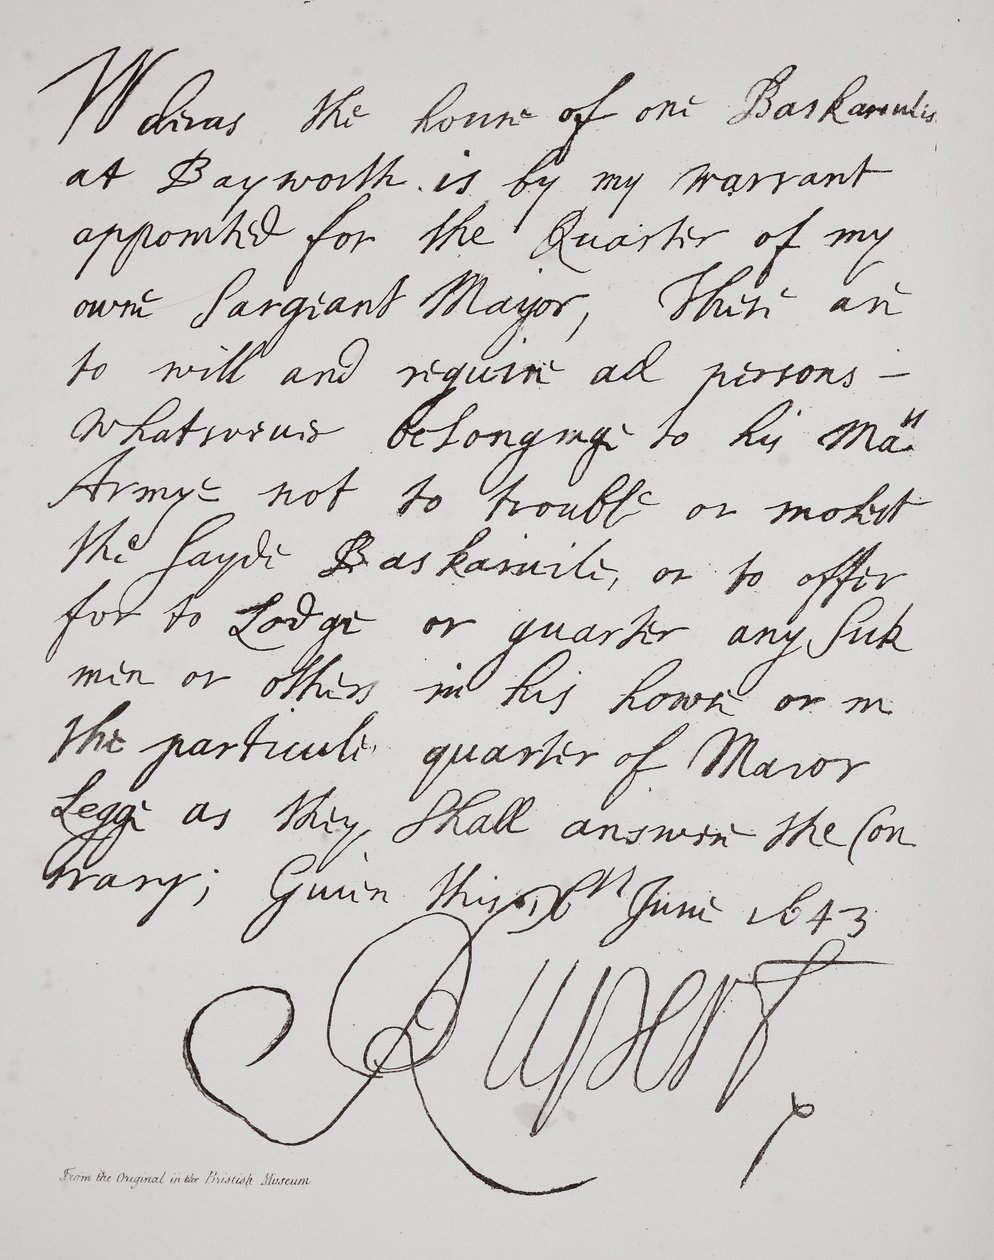 Wheras the house of one Baskarviles
at Bayworth is by my warrant
appointed for the Quarter of my
owne Sargeant Mayor, These are
to will and require all persons –
whatsoever belonginge to his Ma^ts
Armye not to trouble or molest
the sayde Baskarvile, or to offer
for to Lodge or quarter any sick
men or others in his howse or in
the particuler quarter of Maior
Legge as they shall answere the Con
trary; Given this June 1643
Rupert
From the Original in the Bristish Museum